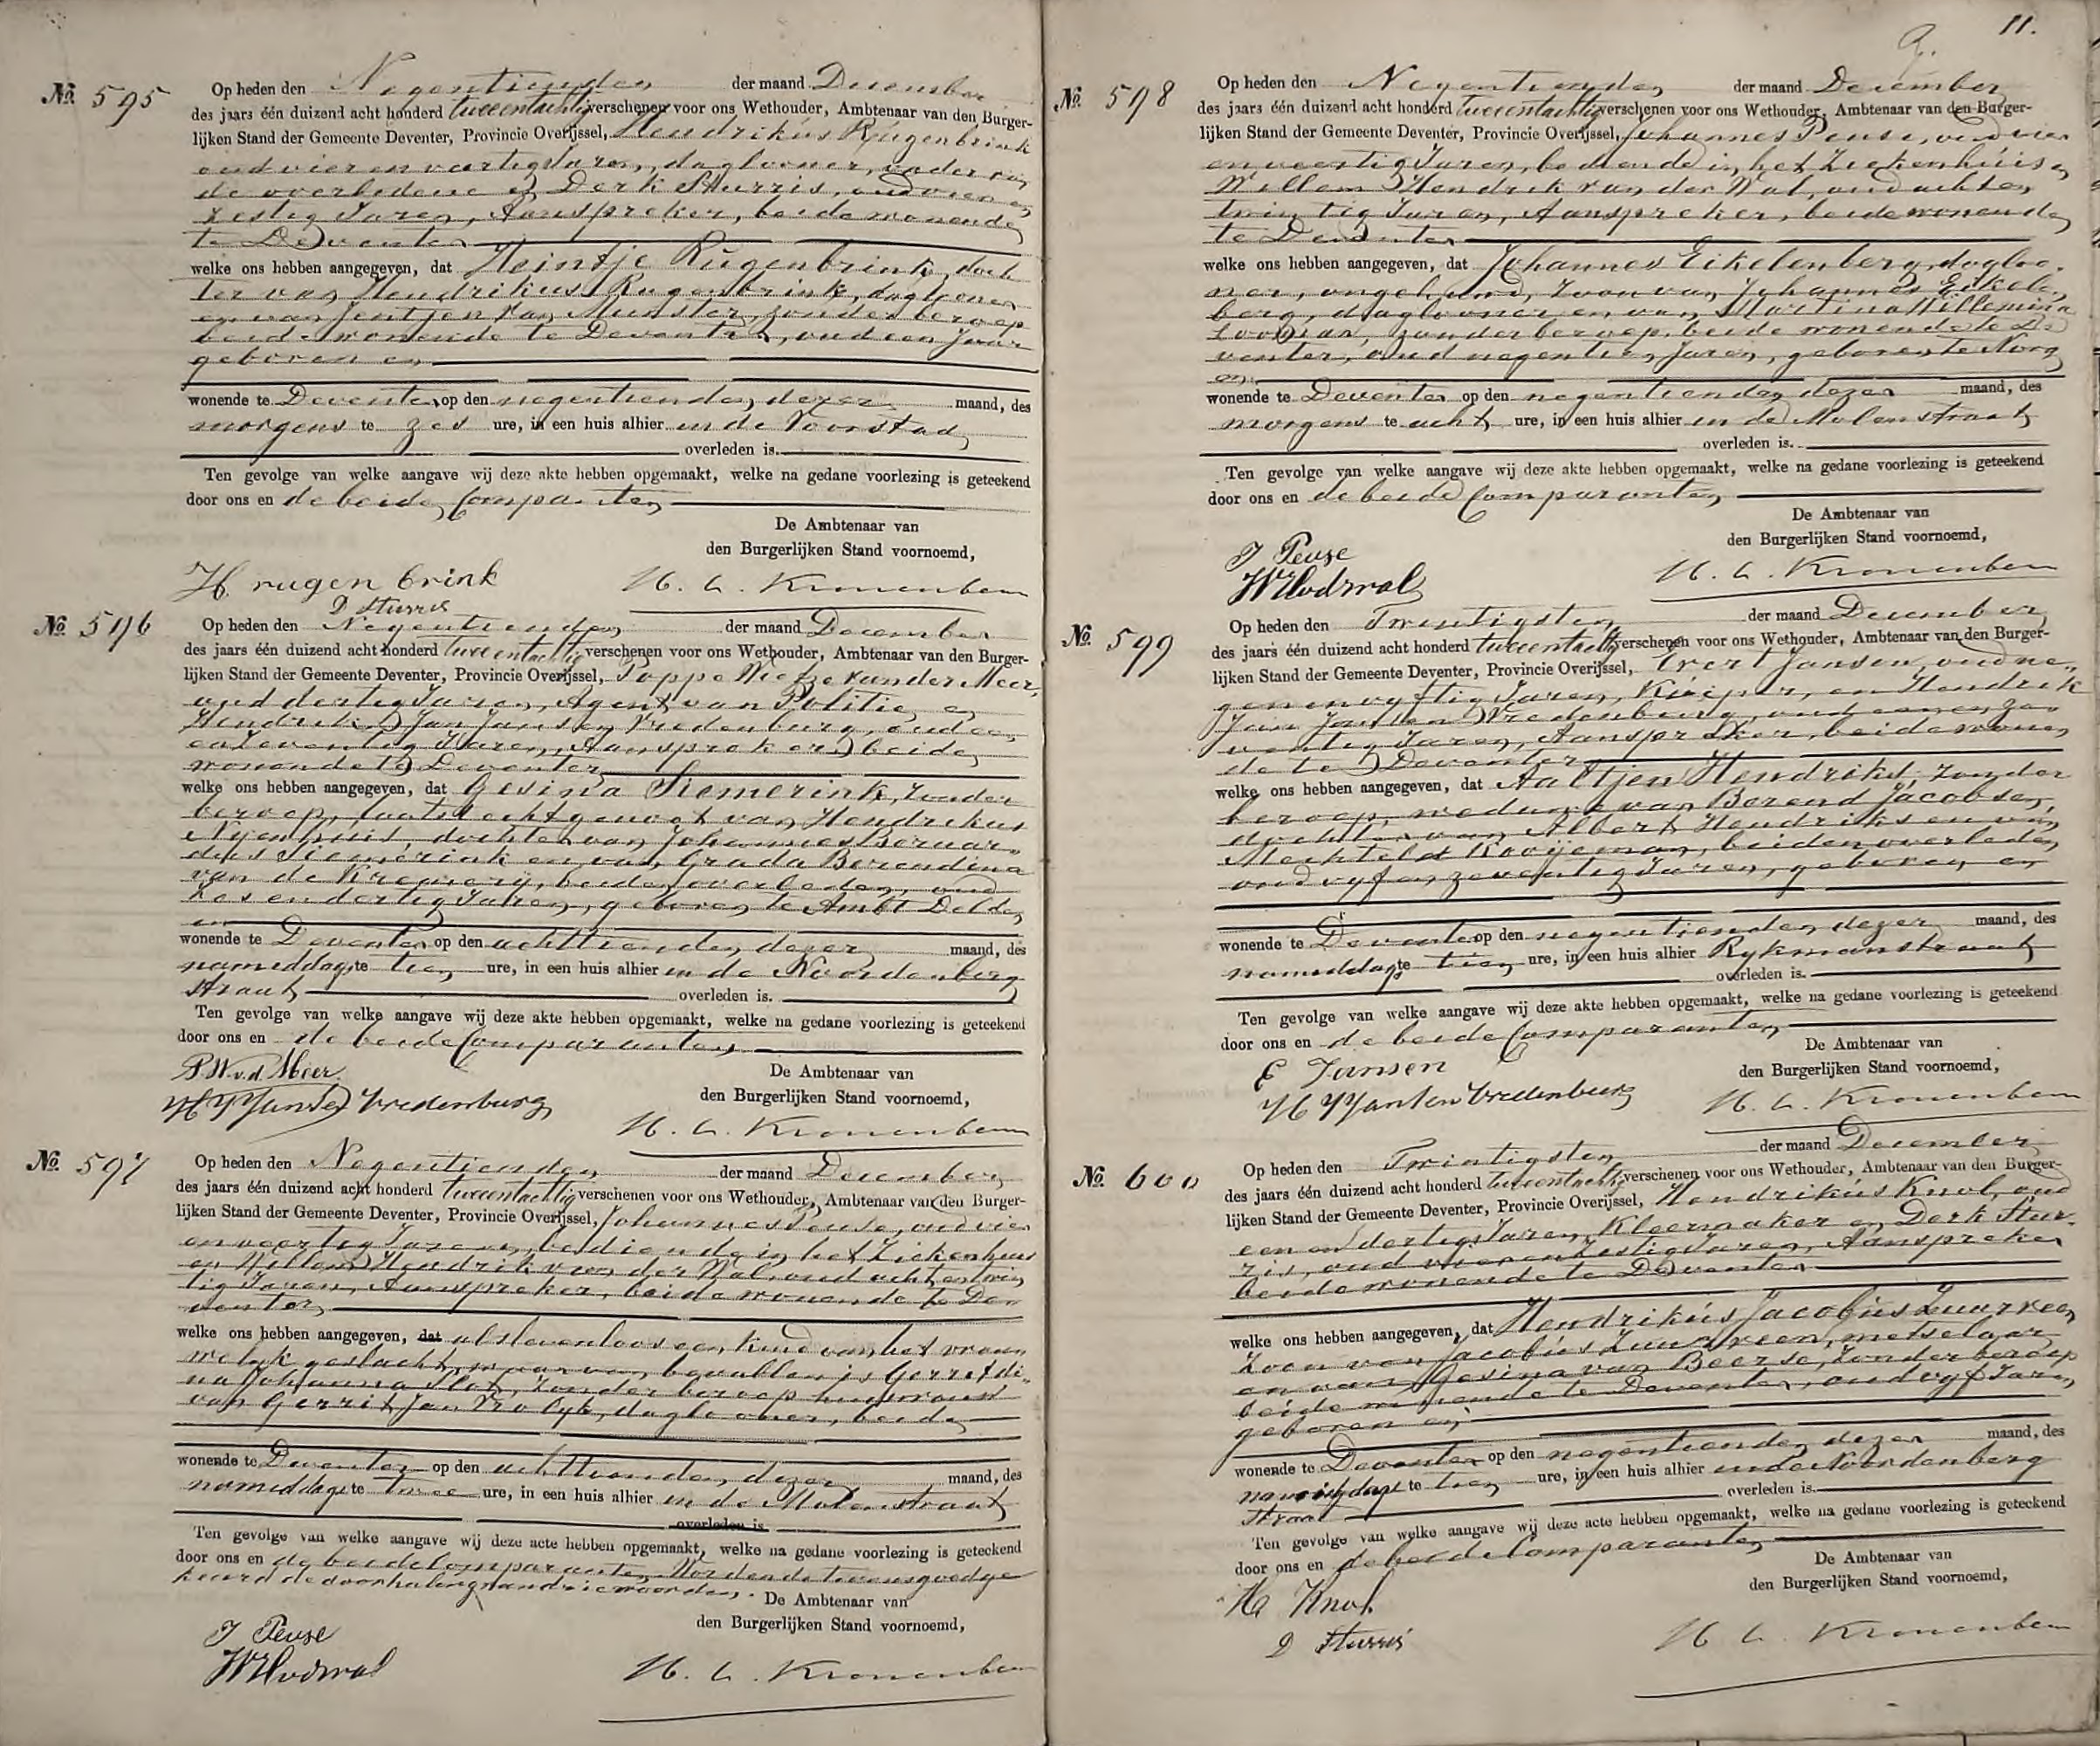 No. 595
Op heden den Negentienden der maand December
des jaars één duizend acht honderd tweeentachtig verschenen voor ons Wethouder, Ambtenaar van den Burger-
lijken Stand der Gemeente Deventer, Provincie Overijssel, Hendrikus Rugenbrink
oud vier en veertig Jaren, daglooner, vader van
de overledene en Derk Sturris, oud vier en
zestig Jaren, Aanspreker, beide wonende
te Deventer
welke ons hebben aangegeven, dat Heintje Rugenbrink, doch
ter van Hendrikus Rugenbrink, daglooner
en van Jentjen van Munster, zonder beroep
beide wonende te Deventer, oud een jaar
geboren en
wonende te Deventer op den negentienden dezer maand, des
morgens te zes ure, in een huis alhier in de Voorstad
overleden is.
Ten gevolge van welke aangave wij deze akte hebben opgemaakt, welke na gedane voorlezing is geteekend
door ons en de beide Comparanten
De Ambtenaar van
den Burgerlijken Stand voornoemd,
H. rugen brink
D Sturris
No. 596
Op heden den Negentienden der maand December
des jaars één duizend acht honderd tweeentachtig verschenen voor ons Wethouder, Ambtenaar van den Burger-
lijken Stand der Gemeente Deventer, Provincie Overijssel, Poppe Wietze van der Meer,
oud dertig Jaren, Agent van Politie, en
Hendrik Jan Jansen Vredenburg, oud een
en zeventig Jaren, Aanspreker, beide
wonende te Deventer
welke ons hebben aangegeven, dat Gesina Siemerink, zonder
beroep, laatst echtgenoot van Hendrikus
Nyenhuis, dochter van Johannes Bernar-
dus Siemerink en van Grada Berendina
van de Kremery, beiden overleden, oud
zes en dertig Jaren, geboren te Ambt Delden
en
wonende te Deventer op den achttienden dezer maand, des
namiddags te tien ure, in een huis alhier in de Noordenberg
straat overleden is.
Ten gevolge van welke aangave wij deze akte hebben opgemaakt, welke na gedane voorlezing is geteekend
door ons en de beide Comparanten
De Ambtenaar van
den Burgerlijken Stand voornoemd,
P.W.v.d. Meer
H J Jansen Vredenburg
No. 597
Op heden den Negentienden der maand December
des jaars één duizend acht honderd tweeentachtig verschenen voor ons Wethouder, Ambtenaar van den Burger-
lijken Stand der Gemeente Deventer, Provincie Overijssel, Johannes Peuse, oud vier
en veertig Jaren, bediende in het Ziekenhuis
en Willem Hendrik van der Wal, oud acht en twin
tig Jaren, Aanspreker, beide wonende te De
venter
welke ons hebben aangegeven, dat als levenloos een kind van het vrou
welyk geslacht, waarvan bevallen is Gerretdi-
na Johanna Slot, zonder beroep huisvrouw
van Gerrit Jan Vrolyk, daglooner, beide
wonende te Deventer op den achttienden dezer maand, des
namiddags te twee ure, in een huis alhier in de Molenstraat
overleden is
Ten gevolge van welke aangave wij deze acte hebben opgemaakt, welke na gedane voorlezing is geteekend
door ons en de beide Comparanten Wordende tevens goedge
keurd de doorhaling van drie woorden. De Ambtenaar van
den Burgerlijken Stand voornoemd,
J Peuse
WHvdwal
11.
No. 598
Op heden den Negentienden der maand December
des jaars één duizend acht honderd tweeentachtig verschenen voor ons Wethouder, Ambtenaar van den Burger-
lijken Stand der Gemeente Deventer, Provincie Overijssel, Johannes Peuse, oud vier
en veertig Jaren, bediende in het Ziekenhuis en
Willem Hendrik van der Wal, oud acht en
twintig Jaren, Aanspreker, beide wonende
te Deventer
welke ons hebben aangegeven, dat Johannes Eikelenberg, dagloo-
ner, ongehuwd, zoon van Johannes Eikelen
berg, daglooner en van Martina Willemina
zonder beroep, beide wonende te De
venter, oud negentien Jaren, geboren te Norg
en
wonende te Deventer op den negentienden dezer maand, des
morgens te acht ure, in een huis alhier in de Molenstraat
overleden is.
Ten gevolge van welke aangave wij deze akte hebben opgemaakt, welke na gedane voorlezing is geteekend
door ons en de beide Comparanten
De Ambtenaar van
den Burgerlijken Stand voornoemd,
J Peuse
WHvdwal
No. 599
Op heden den Twintigsten der maand December
des jaars één duizend acht honderd tweeentachtig verschenen voor ons Wethouder, Ambtenaar van den Burger-
lijken Stand der Gemeente Deventer, Provincie Overijssel, Evert Jansen, oud ne-
genenvyftig Jaren, Kuiper, en Hendrik
Jan Jansen Vredenburg, oud een en ze-
ventig Jaren, Aanspreker, beide wonen
de te Deventer
welke ons hebben aangegeven, dat Aaltjen Hendriks, zonder
beroep, weduwe van Berend Jacobsen,
dochter van Albert Hendriks en van
Mechteld Kooijeman, beiden overleden
oud vyf en zeventig Jaren, geboren en
wonende te Deventer op den negentienden dezer maand, des
namiddags te tien ure, in een huis alhier Rykmanstraat
overleden is.
Ten gevolge van welke aangave wij deze akte hebben opgemaakt, welke na gedane voorlezing is geteekend
door ons en de beide Comparanten
De Ambtenaar van
den Burgerlijken Stand voornoemd,
E Jansen
H J Jansen Vredenburg
No. 600
Op heden den Twintigsten der maand December
des jaars één duizend acht honderd tweeentachtig verschenen voor ons Wethouder, Ambtenaar van den Burger-
lijken Stand der Gemeente Deventer, Provincie Overijssel, Hendrikus Knol, oud
een en dertig Jaren, Kleermaker en Derk Stur-
ris, oud vier en zestig Jaren, Aanspreker
beide wonende te Deventer
welke ons hebben aangegeven, dat Hendrikus Jacobus Zuurveen
zoon van Jacobus Zuurveen, metselaar
en van Gesina van Beerse, zonder beroep
beide wonende te Deventer, oud vyf Jaren
geboren en
wonende te Deventer op den negentienden dezer maand, des
namiddags te tien ure, in een huis alhier in de Noordenberg
straat overleden is.
Ten gevolge van welke aangave wij deze acte hebben opgemaakt, welke na gedane voorlezing is geteekend
door ons en de beide Comparanten
De Ambtenaar van
den Burgerlijken Stand voornoemd,
H Knol
D Sturris